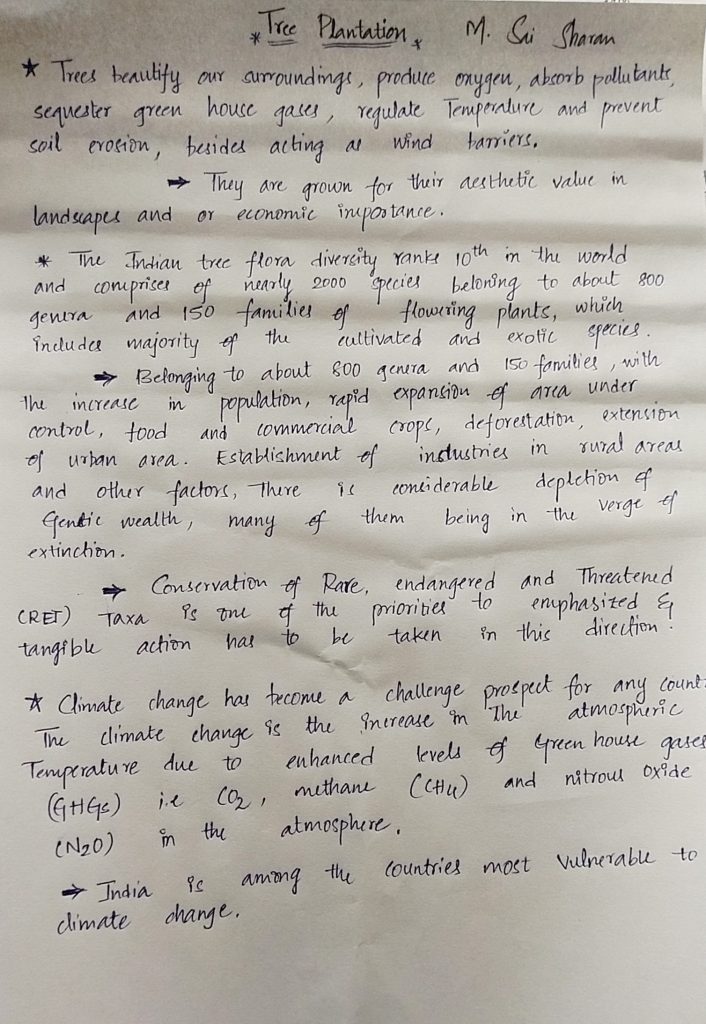 * Tree Plantation * M. Sai Sharan
* Trees beautify our surroundings, produce oxygen, absorb pollutants,
sequester green house gases, regulate Temperature and prevent
soil erosion, besides acting as wind barriers.
→ They are grown for their aesthetic value in
landscapes and or economic importance.
* The Indian tree flora diversity ranks 10th in the world
and comprises of nearly 2000 species beloning to about 800
genera and 150 families of flowering plants, which
includes majority of the cultivated and exotic species.
→ Belonging to about 800 genera and 150 families, with
the increase in population, rapid expansion of area under
control, food and commercial crops, deforestation, extension
of urban area. Establishment of industries in rural areas
and other factors, There is considerable depletion of
Gentic wealth, many of them being in the verge of
extinction.
→ Conservation of Rare, endangered and Threatened
(RET) Taxa is one of the priorities to emphasized &
tangible action has to be taken in this direction.
* Climate change has become a challenge prospect for any count
The climate change is the increase in The atmospheric
Temperature due to enhanced levels of Green house gases
(GHGs) i.e CO2, methane (CH4) and nitrous Oxide
(N2O) in the atmosphere.
→ India is among the countries most vulnerable to
climate change.